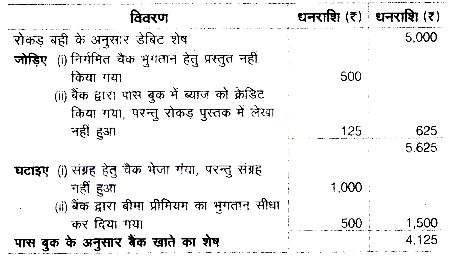 विवरण धनराशि (₹) धनराशि (₹)
रोकड़ बही के अनुसार डेबिट शेष 5,000
जोड़िए (i) निर्गमित चैक भुगतान हेतु प्रस्तुत नहीं
किया गया 500
(ii) बैंक द्वारा पास बुक में ब्याज को क्रेडिट
किया गया, परन्तु रोकड़ पुस्तक में लेखा
नहीं हुआ 125 625
5,625
घटाइए (i) संग्रह हेतु चैक भेजा गया, परन्तु संग्रह
नहीं हुआ 1,000
(ii) बैंक द्वारा बीमा प्रीमियम का भुगतान सीधा
कर दिया गया 500 1,500
पास बुक के अनुसार बैंक खाते का शेष 4,125